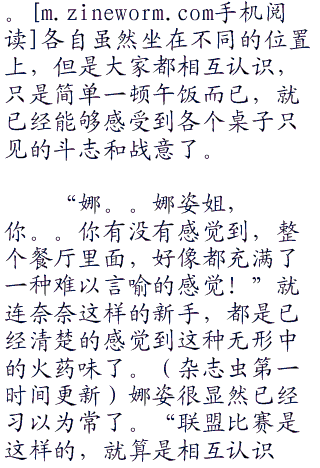 。[m.zineworm.com手机阅
读]各自虽然坐在不同的位置
上，但是大家都相互认识，
只是简单一顿午饭而已，就
已经能够感受到各个桌子只
见的斗志和战意了。
“娜。。娜姿姐，
你。。你有没有感觉到，整
个餐厅里面，好像都充满了
一种难以言喻的感觉！”就
连奈奈这样的新手，都是已
经清楚的感觉到这种无形中
的火药味了。（杂志虫第一
时间更新）娜姿很显然已经
习以为常了。“联盟比赛是
这样的，就算是相互认识